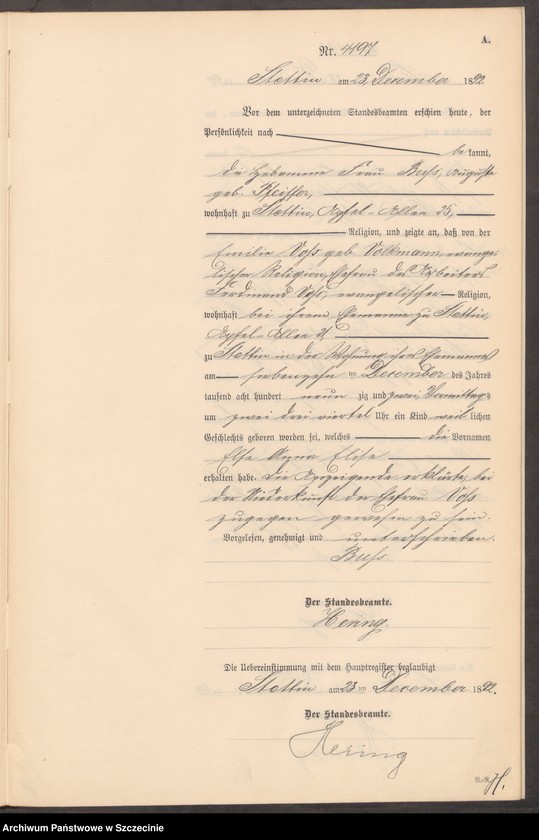 A.
Nr. 4497
Stettin am 23. December 1892
Vor dem unterzeichneten Standesbeamten erschien heute, der
Persönlichkeit nach
bekannt,
die Hebamme Frau Buss, Auguste
geb. Pfeiffer,
wohnhaft zu Stettin, Apfel-Allee 25,
Religion, und zeigte an, daß von der
Emilie Voß geb. Volkmann, evange-
lischer Religion, Ehefrau des Arbeiters
Ferdinand Voß, evangelischer Religion,
wohnhaft bei ihrem Ehemanne zu Stettin,
Apfel-Allee
zu Stettin in der Wohnung ihres Ehemannes
am siebenzehn ten December des Jahres
tausend acht hundert neunzig und zwei, Vormittags
um zwei drei viertel Uhr ein Kind weiblichen
Geschlechts geboren worden sei, welches die Vornamen
Else Anna Elise
erhalten habe. Die Anzeigende erklärte, bei
der Niederkunft der Ehefrau Voß
zugegen gewesen zu sein.
Vorgelesen, genehmigt und unterschrieben.
Buss
Der Standesbeamte.
Hering.
Die Uebereinstimmung mit dem Hauptregister beglaubigt
Stettin am 23 ten December 1892.
Der Standesbeamte.
Hering
Archiwum Państwowe w Szczecinie